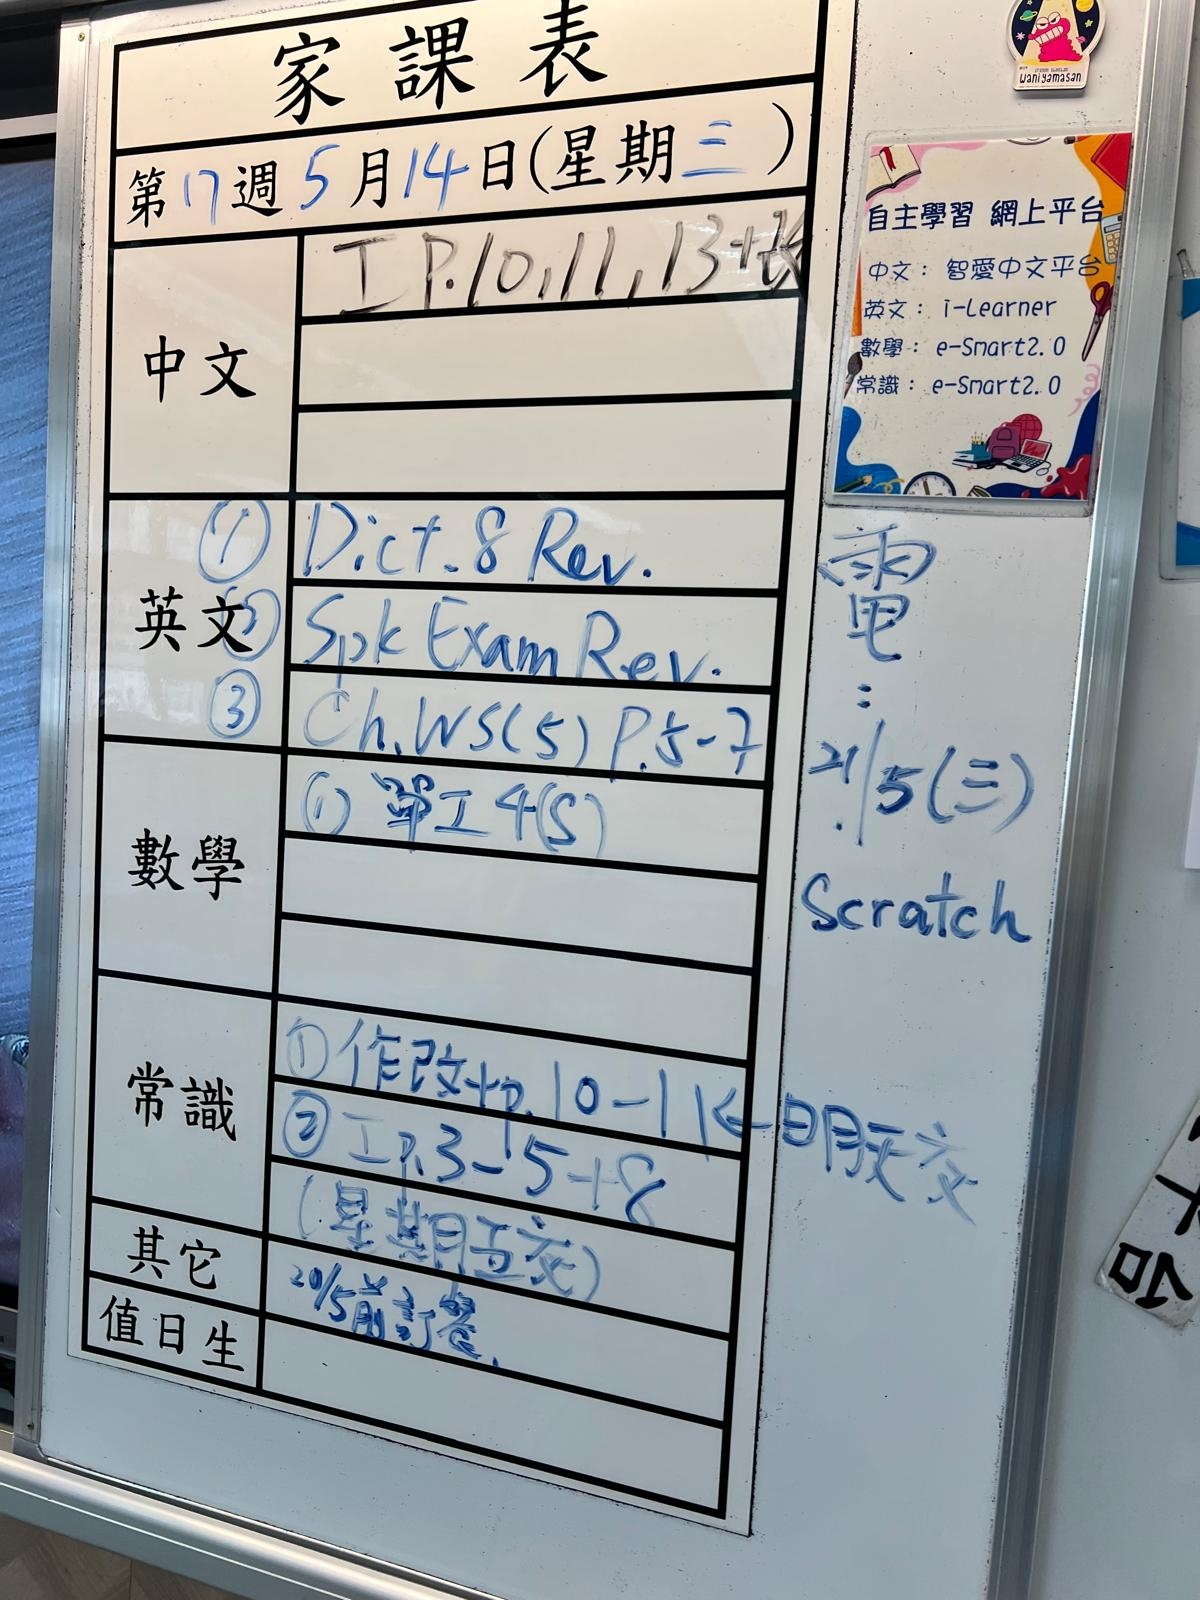 家課表
第17週5月14日(星期三)
中文
工 P.10,11,13+
英文
① Dict. 8 Rev.
② Spk Exam Rev.
③ Ch. WS(5) P.5-7
數學
① 單工4(S)
常識
① 作改+p.10-11←明天交
② 工P.3-5+8
(星期五交)
其它
20/5前訂餐.
值日生
waniyamasan
自主學習 網上平台
中文： 智愛中文平台
英文： i-Learner
數學： e-Smart2.0
常識： e-Smart2.0
電
:
21/5(三)
Scratch